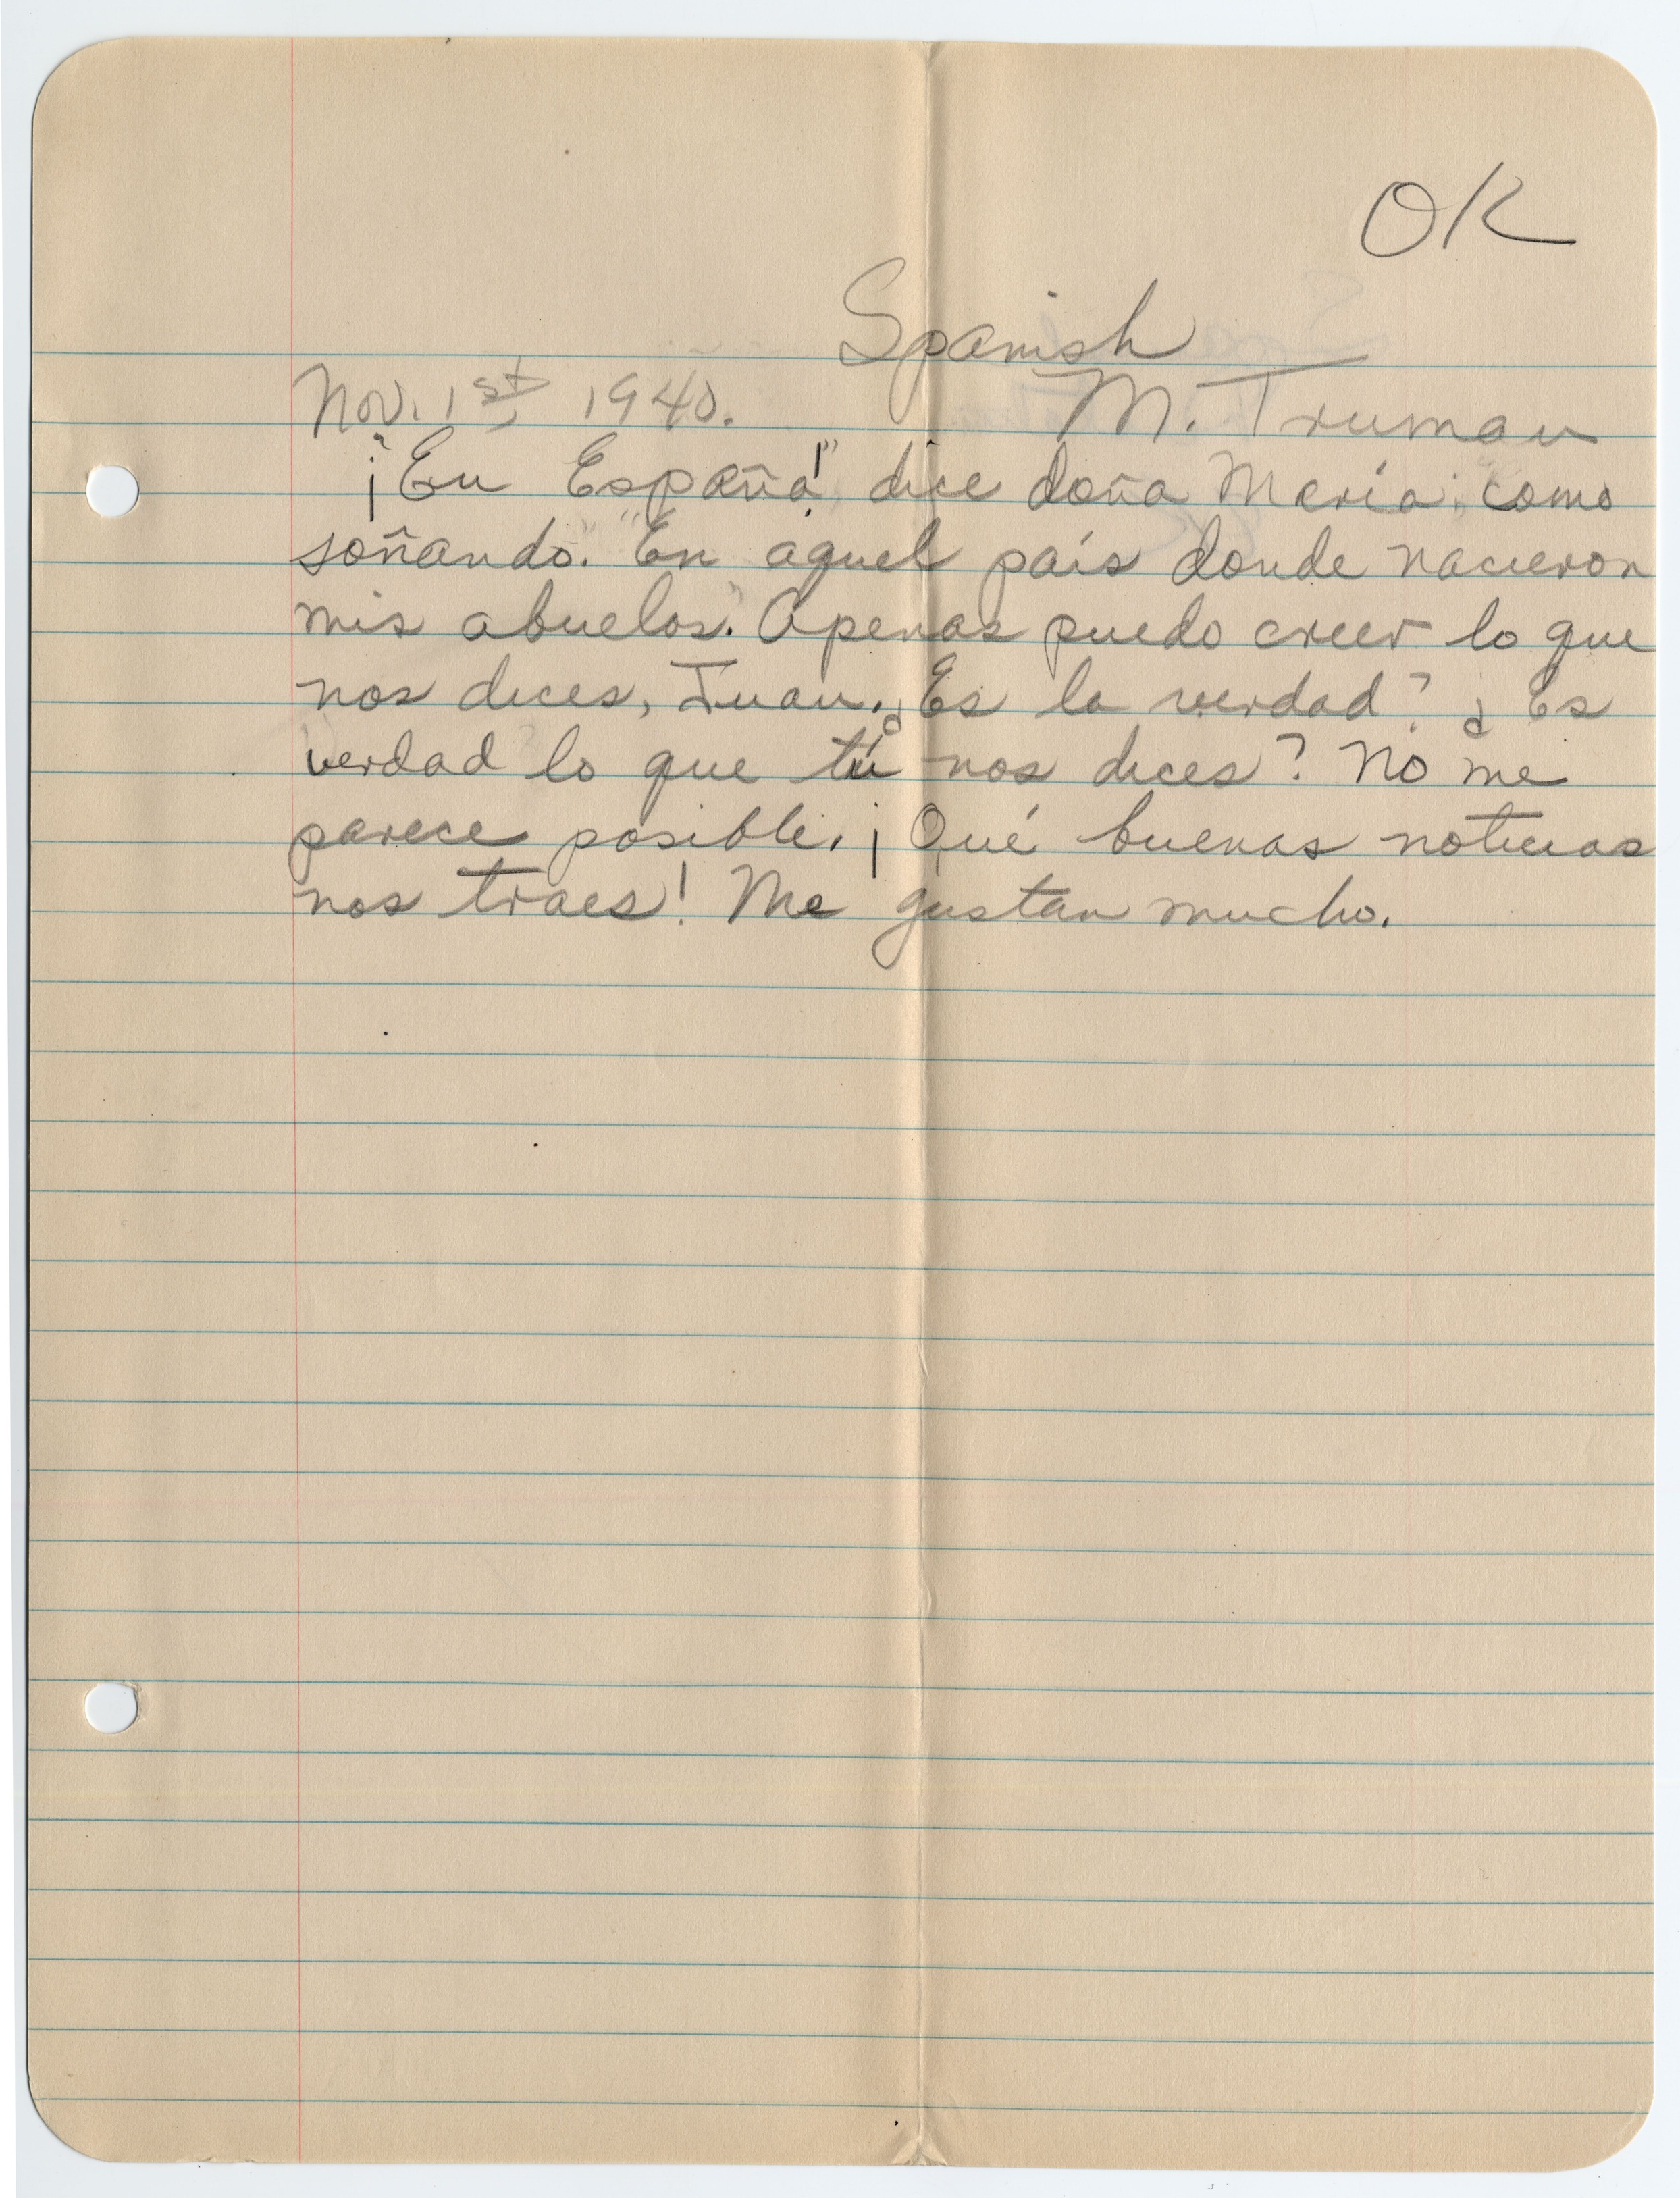 OK
Spanish
Nov. 1st, 1940. M. Truman
"¡En España!" dice doña María, como
soñando. "En aquel país donde nacieron
mis abuelos." Apenas puedo creer lo que
nos dices, Juan. ¿Es la verdad? ¿Es
verdad lo que tú nos dices? No me
parece posible. ¡Qué buenas noticias
nos traes! Me gustan mucho.